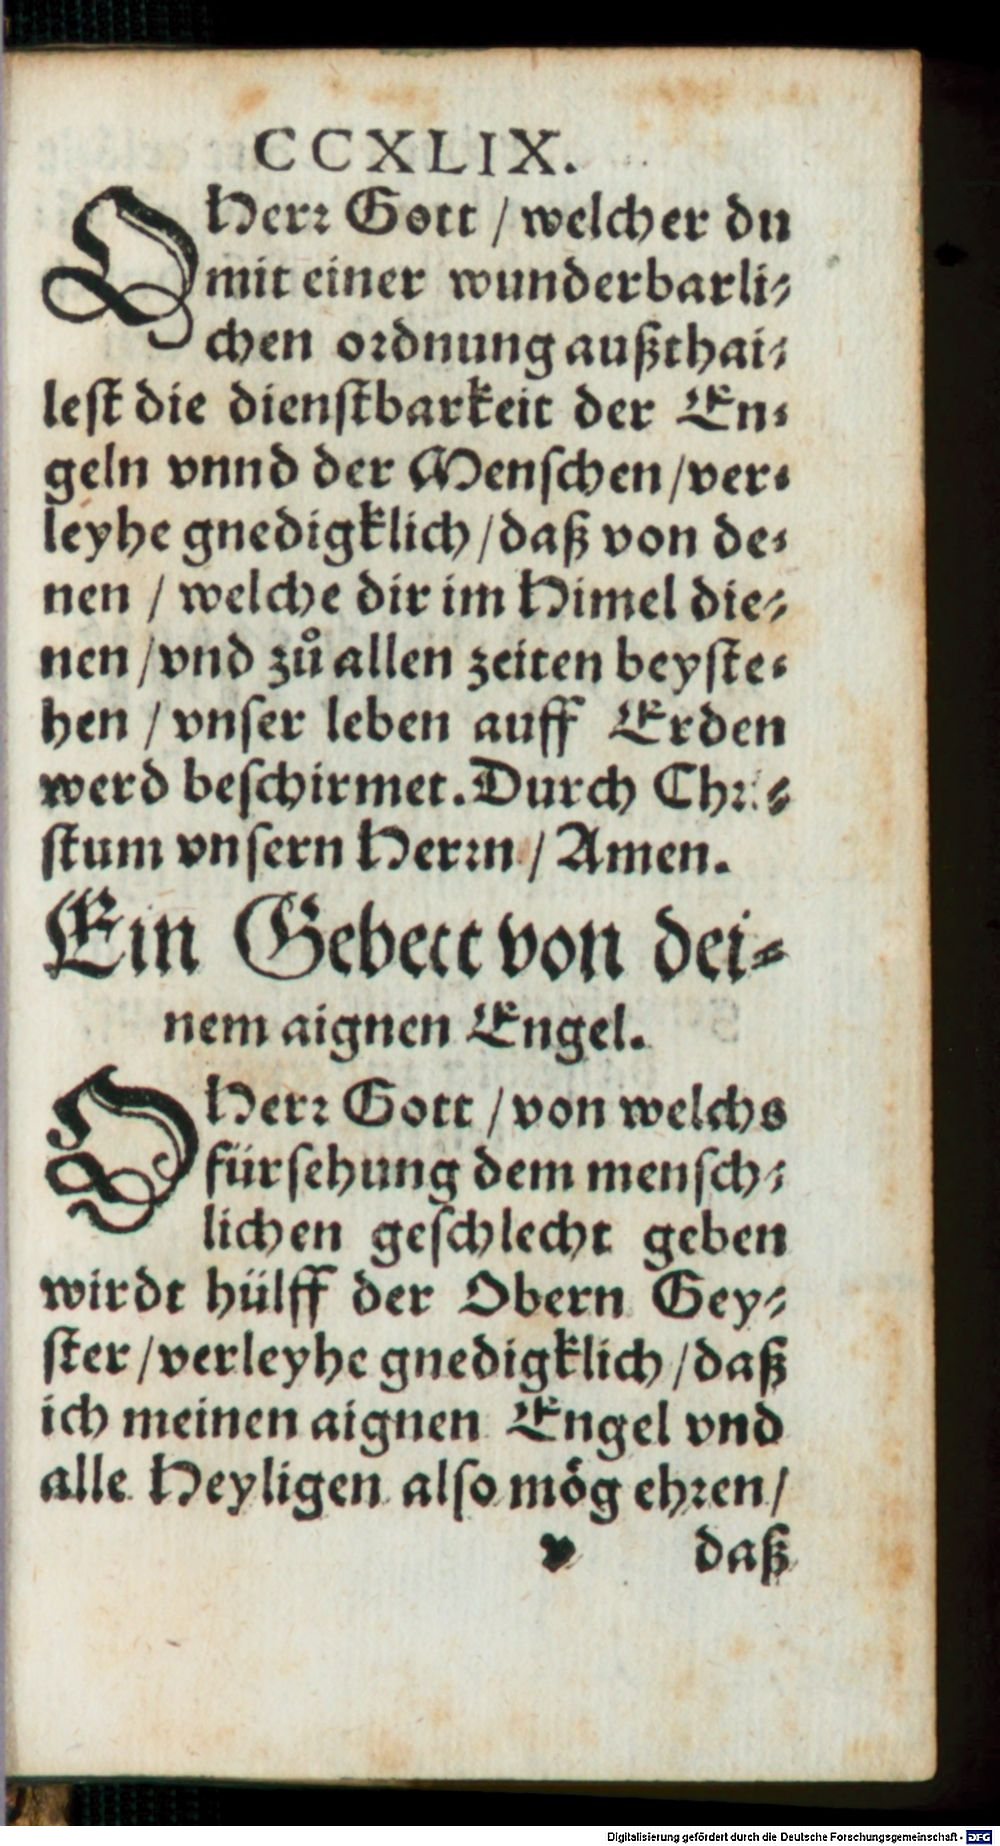 CCXLIX.
O Herr Gott / welcher du
mit einer wunderbarli⸗
chen ordnung außthai⸗
lest die dienstbarkeit der En⸗
geln vnnd der Menschen / ver⸗
leyhe gnedigklich / daß von de⸗
nen / welche dir im Himel die⸗
nen / vnd zů allen zeiten beyste⸗
hen / vnser leben auff Erden
werd beschirmet. Durch Chri⸗
stum vnsern Herrn / Amen.
Ein Gebett von dei⸗
nem aignen Engel.
O Herr Gott / von welchs
fürsehung dem mensch⸗
lichen geschlecht geben
wirdt hülff der Obern Gey⸗
ster / verleyhe gnedigklich / daß
ich meinen aignen Engel vnd
alle Heyligen also mög ehren /
v daß
Digitalisierung gefördert durch die Deutsche Forschungsgemeinschaft - DFG